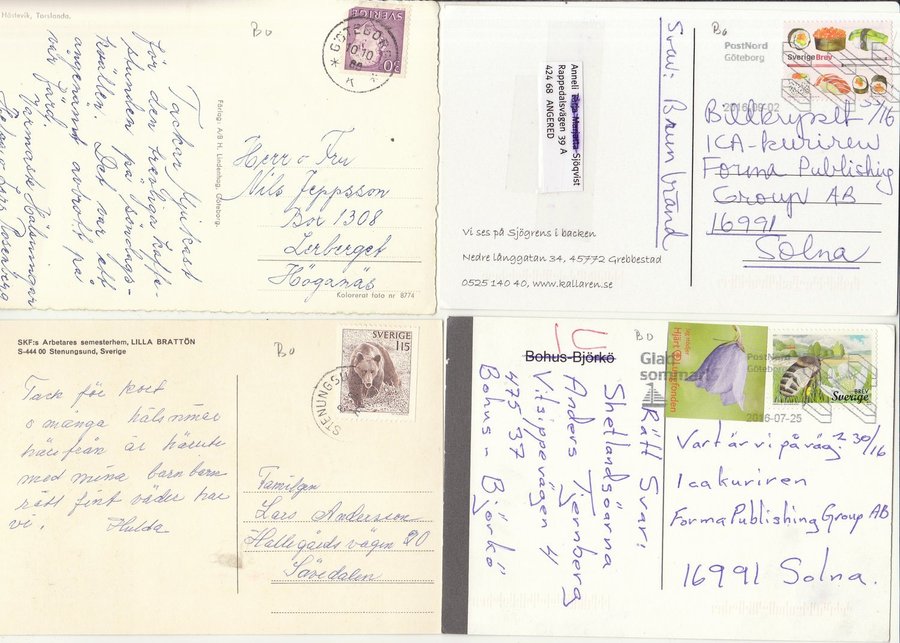 Hästevik, Torslanda.
BO
SVERIGE
30
GÖTEBORG
10 10
* K *
Tackar hjärtligast
för den trevliga kaffe-
stunden på söndags-
kvällen. Det var ett
angenämt avbrott på
vår färd.
Förlag: A/B H. Lindenhag, Göteborg.
Herr o Fru
Nils Jeppsson
Box 1308
Lerberget
Höganäs
Kolorerat foto nr 8774
Bo
PostNord
Göteborg
2016-09-02
Sverige Brev
Svar: Brun brand
Anneli
Sjöqvist
Rappedalsvägen 39 A
424 68 ANGERED
Bildkrysset 35/16
ICA-kuriren
Forma Publishing
Group AB
16991
Solna
Vi ses på Sjögrens i backen
Nedre långgatan 34, 45772 Grebbestad
0525 140 40, www.kallaren.se
SKF:s Arbetares semesterhem, LILLA BRATTÖN
S-444 00 Stenungsund, Sverige
BO
SVERIGE
115
STENUNGSU
Tack för kort
o många hälsningar
härifrån är härute
med mina barnbarn
rätt fint väder har
vi. Hulda
Familjen
Lars Andersson
Hallegårdsvägen 20
Sävedalen
U
Bohus-Björkö
BO
Glad
sommar
Hjärt Lungfonden
PostNord
Göteborg
2016-07-25
BREV
Sverige
Rätt Svar:
Shetlandsöarna
Anders Tjernberg
Vitsippevägen 4
475 37
Bohus-Björkö
Vart är vi på väg? 30/16
Icakuriren
Forma Publishing Group AB
16991 Solna.